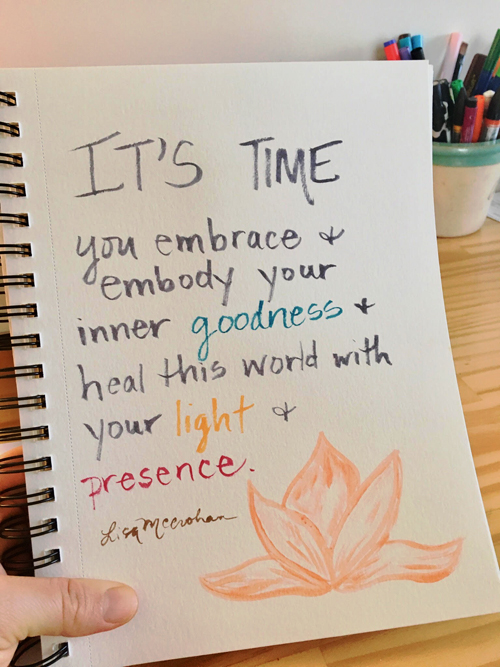 IT'S TIME
you embrace &
embody your
inner goodness &
heal this world with
your light &
presence.
Lisa McCrohan